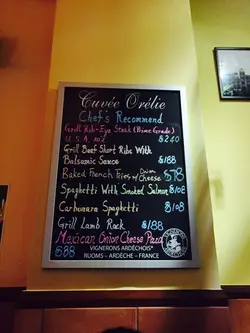 Cuvée Orélie
Chef's Recommend
Grill Rib-Eye Steak (Prime Grade)
U.S.A 10oz $240
Grill Beef Short Ribs With
Balsamic Sauce $188
Baked French Fries w/ Onion Cheese $78
Spaghetti With Smoked Salmon $108
Carbonara Spaghetti $108
Grill Lamb Rack $188
Mexican Onion Cheese Pizza
$88
VIGNERONS ARDÉCHOIS
RUOMS – ARDÈCHE – FRANCE